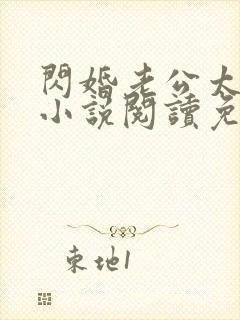 閃婚老公太
小說閱讀免
東地1